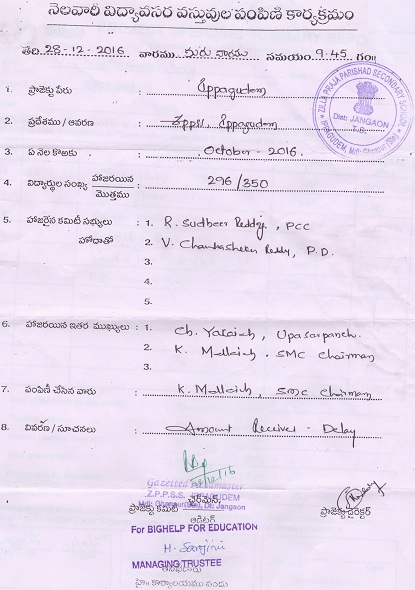 నెలవారీ విద్యావసర వస్తువుల పంపిణీ కార్యక్రమం
తేది. 28-12-2016 వారము. గురు వారము సమయం 9-45 గం॥
ZILLA PRAJA PARISHAD SECONDARY SCHOOL
Dist: JANGAON
1. ప్రాజెక్టు పేరు : Ippagudem
2. ప్రదేశము / ఆవరణ : Zppss, Ippagudem
3. ఏ నెల కొఱకు : October - 2016.
4. విద్యార్థుల సంఖ్య హాజరయిన / మొత్తము : 296/350
5. హాజరైన కమిటీ సభ్యులు : 1. R. Sudheer Reddy, PCC
హోదాతో 2. V. Chandrasheker Reddy, P.D.
3.
4.
5.
6. హాజరయిన ఇతర ముఖ్యులు : 1. Ch. Yalaiah, Upasarpanch.
2. K. Mallaiah, SMC Chairman
3.
7. పంపిణీ చేసిన వారు : K. Mallaiah, SMC Chairman
8. వివరణ / సూచనలు : Amount Receives - Delay
Gazetted Headmaster
Z.P.P.S.S. IPPAGUDEM
Dt: Jangaon
ప్రాజెక్టు కమిటీ ఛైర్మెన్ ప్రాజెక్టు డైరెక్టర్
ఆడిటర్
For BIGHELP FOR EDUCATION
MANAGING TRUSTEE
హై॥ కార్యాలయము నందు